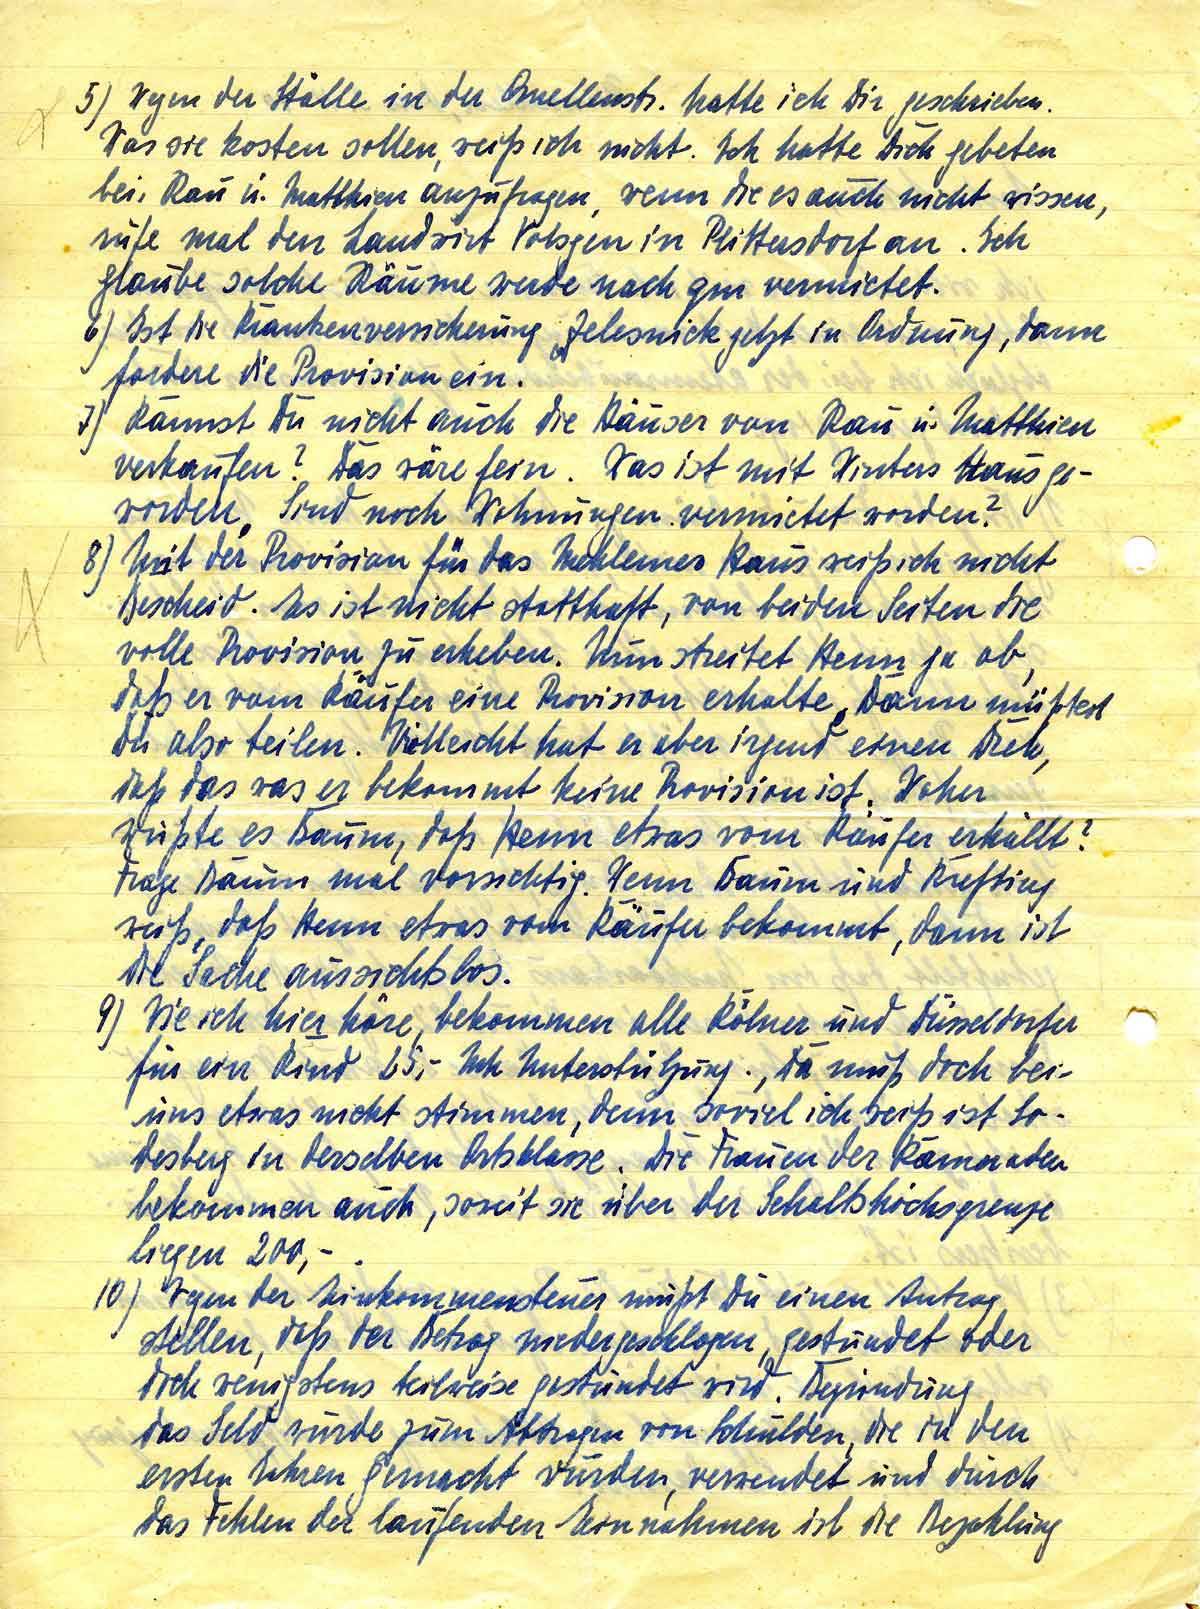 5) Wegen der Ställe in der Quellenstr. hatte ich Dir geschrieben.
Was sie kosten sollen, weiß ich nicht. Ich hatte Dich gebeten
bei Rau u. Matthien anzufragen, wenn die es auch nicht wissen,
rufe mal den Landwirt in Plittersdorf an. Ich
glaube solche Räume werde nach qm vermietet.
6) Ist die Krankenversicherung Jelesnick jetzt in Ordnung, dann
fordere die Provision ein.
7) Kannst Du nicht auch die Häuser von Rau u. Matthien
verkaufen? Das wäre fein. Was ist mit Winters Haus ge-
worden. Sind noch Wohnungen vermietet worden?
8) Mit der Provision für das Mehlemer Haus weiß ich nicht
Bescheid. Es ist nicht statthaft, von beiden Seiten die
volle Provision zu erheben. Nun streitet Henn ja ab,
daß er vom Käufer eine Provision erhalte. Dann müßtest
Du also teilen. Vielleicht hat er aber irgend einen Dreh,
daß das was er bekommt keine Provision ist. Woher
wußte es Baum, daß Henn etwas vom Käufer erhällt?
Frage Baum mal vorsichtig. Wenn Baum und Krefting
weiß, daß Henn etwas vom Käufer bekommt, dann ist
die Sache aussichtslos.
9) Wie ich hier höre, bekommen alle Kölner und Düsseldorfer
für ein Kind 25,- Mk Unterstützung., Da muß doch bei-
uns etwas nicht stimmen, denn soviel ich weiß ist Go-
desberg in derselben Ortsklasse. Die Frauen der Kameraden
bekommen auch, soweit sie über der Gehaltshöchsgrenze
liegen 200,- .
10) Wegen der Einkommensteuer mußt Du einen Antrag
stellen, daß der Betrag niedergeschlagen, gestundet oder
doch wenigstens teilweise gestundet wird. Begründung
das Geld wurde zum Abtragen von Schulden, die in den
ersten Jahren gemacht wurden, verwendet und durch
das Fehlen der laufenden Einnahmen ist die Bezahlung